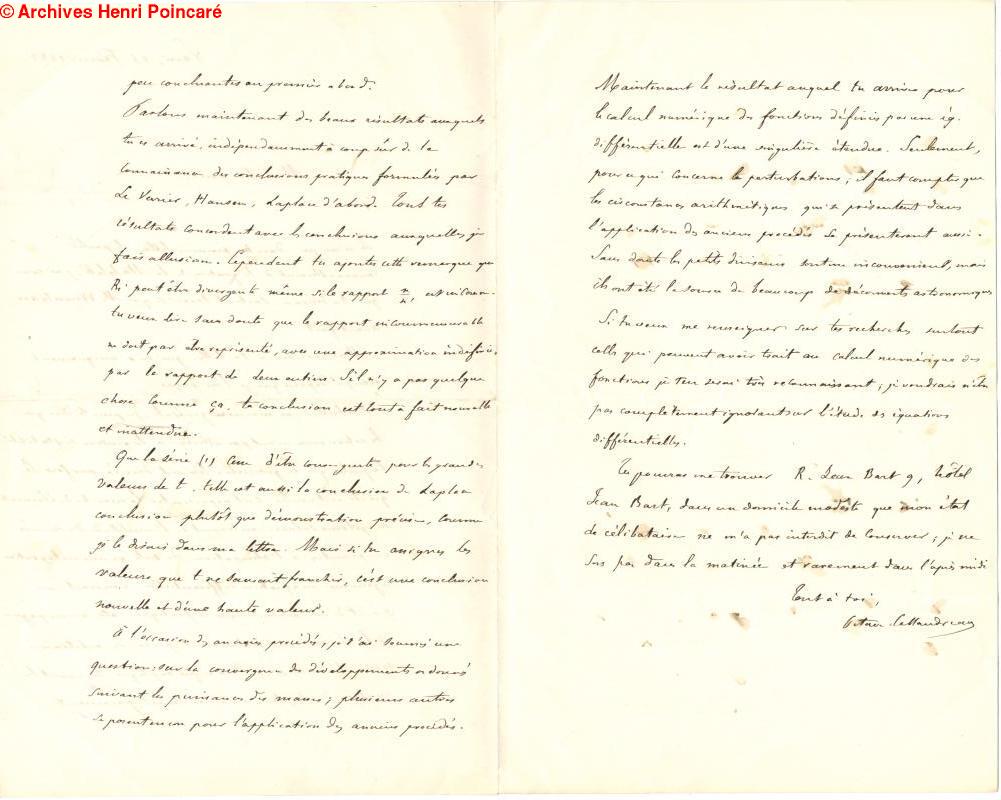 © Archives Henri Poincaré
peu concluantes au premier abord.
Parlons maintenant des beaux résultats auxquels
tu es arrivé, indépendamment à coup sûr de la
connaissance des conclusions pratiques formulées par
Le Verrier, Hansen, Laplace d'abord. Tous tes
résultats concordent avec les conclusions auxquelles je
fais allusion. Cependant tu ajoutes cette remarque que
peut être divergente même si le rapport n/n' est incomm.
tu veux dire sans doute que le rapport incommensurable
ne doit pas être représenté, avec une approximation indéfinie,
par le rapport de deux entiers. S'il n'y a pas quelque
chose comme ça, ta conclusion est tout à fait nouvelle
et inattendue.
Que la série (1) cesse d'être convergente pour les grandes
valeurs de t, telle est aussi la conclusion de Laplace
conclusion plutôt que démonstration précise, comme
je le disais dans ma lettre. Mais si tu assignes les
valeurs que t ne saurait franchir, c'est une conclusion
nouvelle et d'une haute valeur.
À l'occasion des anciens procédés, je t'ai soumis une
question: sur la convergence des développements ordonnés
suivant les puissances des masses; plusieurs autres
se posent encor pour l'application des anciens procédés.
Maintenant le résultat auquel tu arrives pour
le calcul numérique des fonctions définies par une éq.
différentielle est d'une singulière étendue. Seulement,
pour ce qui concerne les perturbations, il faut compter que
les circonstances arithmétiques qui se présentent dans
l'application des anciens procédés se présenteront aussi.
Sans doute les petits diviseurs sont un inconvénient, mais
ils ont été la source de beaucoup de découvertes astronomiques
Si tu veux me renseigner sur tes recherches surtout
celles qui peuvent avoir trait au calcul numérique des
fonctions je t'en serai très reconnaissant; je voudrais n'être
pas complètement ignorant sur l'étude des équations
différentielles.
Tu pourras me trouver R. Jean Bart 9, hôtel
Jean Bart, dans un domicile modeste que mon état
de célibataire ne m'a pas interdit de conserver; je ne
sors pas dans la matinée et rarement dans l'après midi
Tout à toi,
Octave Callandreau